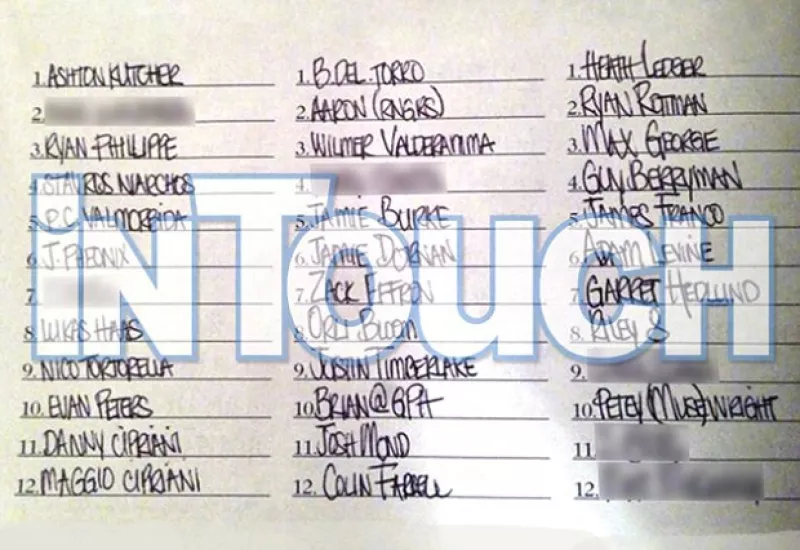 1. ASHTON KUTCHER
2.
3. RYAN PHILIPPE
4. STAVROS NIARCHOS
5. P.C. VALMORBIDA
6. J. PHEONIX
7.
8. LUKAS HAAS
9. NICO TORTORELLA
10. EVAN PETERS
11. DANNY CIPRIANI
12. MAGGIO CIPRIANI
1. B. DEL. TORRO
2. AARON (RNGRS)
3. WILMER VALDERAMMA
4.
5. JAMIE BURKE
6. JAMIE DORNAN
7. ZACK EFFRON
8. ORLI BLOOM
9. JUSTIN TIMBERLAKE
10. BRIAN @ GPH
11. JOSH MOND
12. COLIN FARRELL
1. HEATH LEDGER
2. RYAN ROTTMAN
3. MAX GEORGE
4. GUY BERRYMAN
5. JAMES FRANCO
6. ADAM LEVINE
7. GARRET HEDLUND
8. RILEY S
9.
10. PETEY (MUSE) WRIGHT
11.
12.
INTOUCH